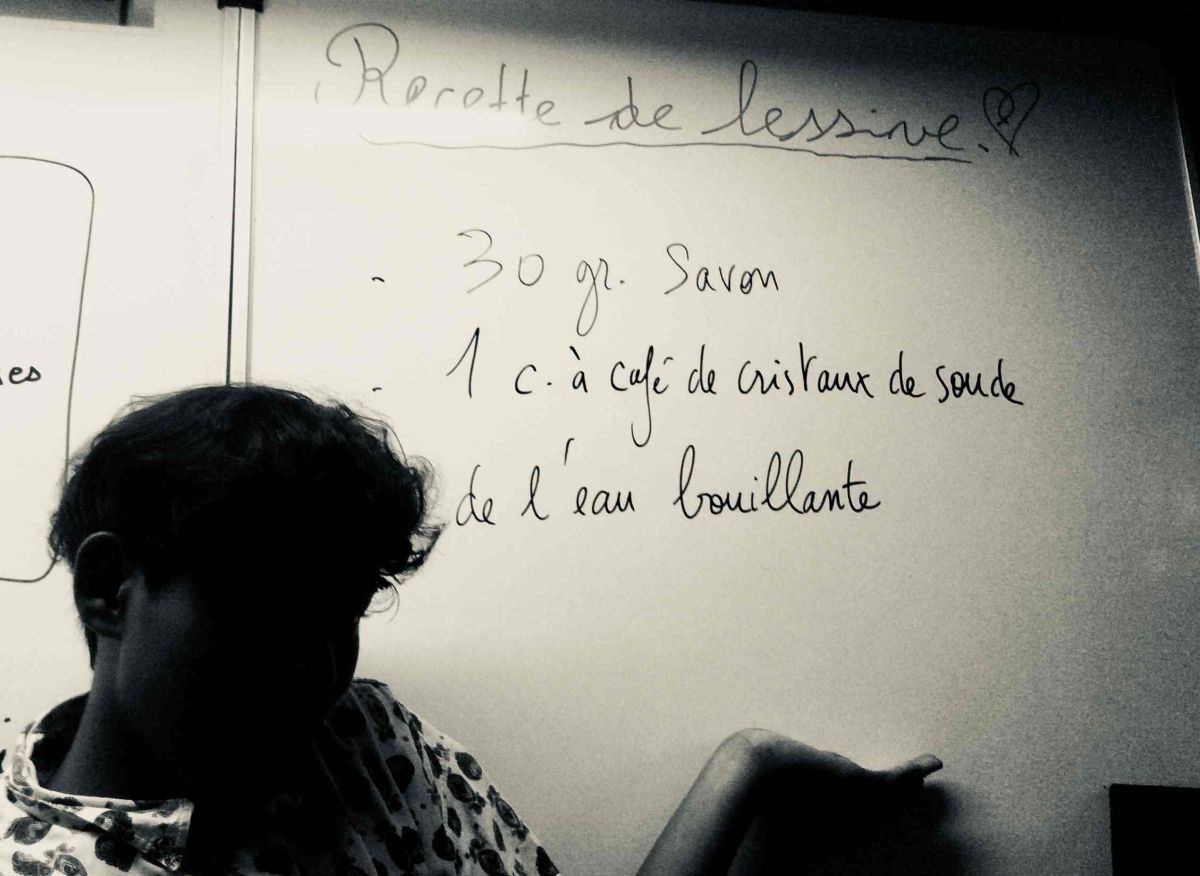 Recette de lessive.
- 30 gr. Savon
- 1 c. à café de cristaux de soude
de l'eau bouillante